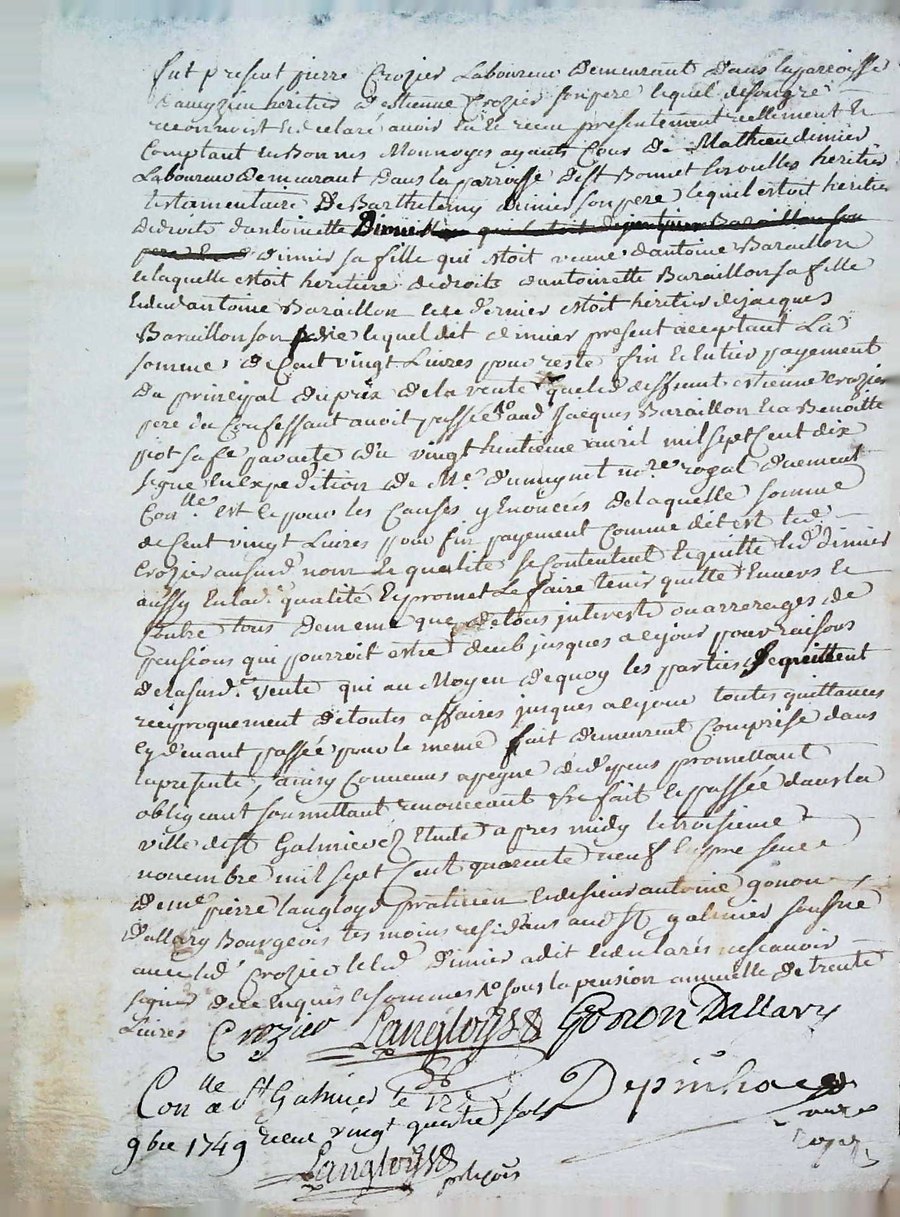 fut present pierre Crozier Laboureur demeurant dans la parroisse
d'aveyzieu heritier d'estienne Crozier son pere lequel de son gre
reconnoist et declaré avoir eu et receu presentement reellement et
comptant en Bonnes Monnoyes ayants Cour de Mathieu dimier
Laboureur demeurant dans la parroisse de st Bonnet les oulles heritier
testamentaire De Barthelemy dimier son pere lequel estoit heritier
de droits d'antoinette Dimier
pere dimier sa fille qui estoit veuve d'antoine Baraillon
et laquelle estoit heritiere de droits d'antoinette Baraillon sa fille
et dud antoine Baraillon et ce dernier estoit heritier de jacques
Baraillon son pere lequel dit dimier present acceptant La
somme de Cent vingt Livres pour reste fin et entier payement
Du principal du prix de la vente que led deffunt estienne Crozier
pere du Confessant avoit passée aud jacques Baraillon et a Benoitte
piot sa fe par acte du vingt huitieme avril mil sept Cent dix
signe en expedition de Me. dumignet nore royal duement
Conlle. est et pour les Causes y enoncées de laquelle somme
de Cent vingt Livres pour fin payement Comme dit est led
Crozier ausurd nom et qualité se Contentent et quitte led dimier
aussy en lad. qualité et promet Le faire tenir quitte Envers et
Contre tous de meme que de tous interests ou arrerages de
pensions qui pourroit estre deub jusques a ce jour pour raisons
de la susd. vente qui au Moyen de quoy les parties Se quittent
reciproquement de toutes affaires jusques a ce jour toutes quittances
cy devant passée pour le meme fait demeurent Comprise dans
la presente, ainsy Convenus a peyne de depens promettant
obligeant soumettant renonceant &re fait et passée dans la
ville de st Galmier Etude apres midy le troisieme
novembre mil sept Cent quarente neuf en presence
de me. pierre langloys praticien et de sieur antoine gonon
Dallary Bourgeois tesmoins residans aud st galmier soussné
avec led Crozier et led Dimier a dit et declarés ne scavoir
signer de ce Enquis et sommes sous la pension annuelle de trente
Livres Crozier Langloys Gonon Dallary
Conlle a st Galmier le 12e
9bre 1749 receu vingt quatre sols Depinhac
Langloys